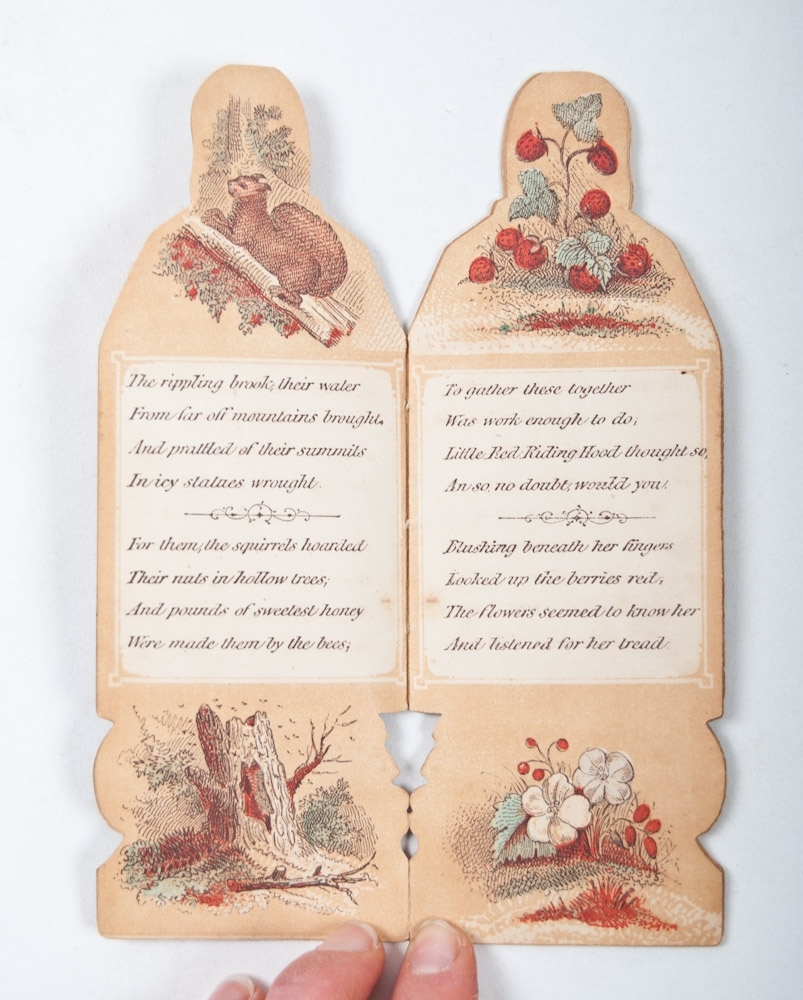 The rippling brook, their water
From far off mountains brought,
And prattled of their summits
In icy statues wrought.
For them, the squirrels hoarded
Their nuts in hollow trees;
And pounds of sweetest honey
Were made them by the bees;
To gather these together
Was work enough to do;
Little Red Riding Hood thought so,
An so, no doubt, would you.
Blushing beneath her fingers
Looked up the berries red;
The flowers seemed to know her
And listened for her tread.